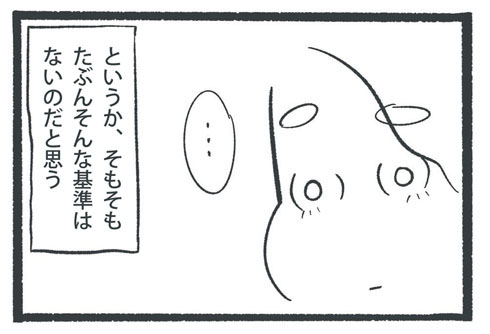 というか、そもそも
たぶんそんな基準は
ないのだと思う
…